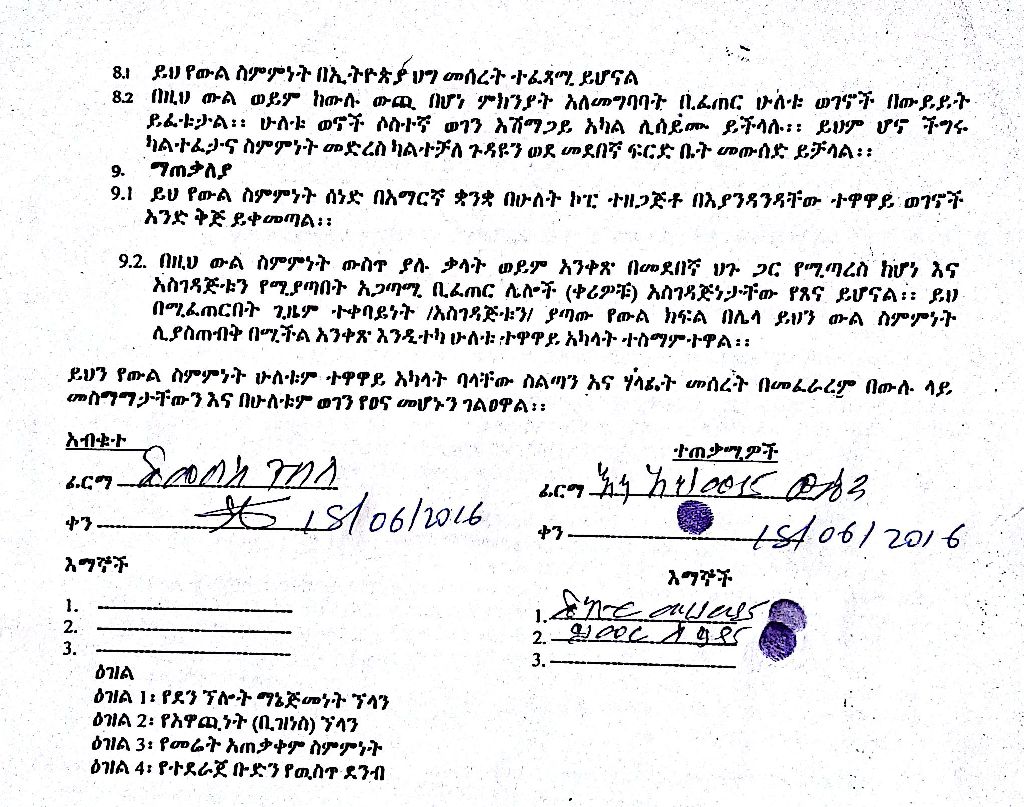 8.1 ይህ የውል ስምምነት በኢትዮጵያ ህግ መሰረት ተፈጻሚ ይሆናል
8.2 በዚህ ውል ወይም ከውሉ ውጪ በሆነ ምክንያት አለመግባባት ቢፈጠር ሁለቱ ወገኖች በውይይት
ይፈቱታል፡፡ ሁለቱ ወኖች ሶስተኛ ወገን እሽማጋይ አካል ሊሰይሙ ይችላሉ፡፡ ይህም ሆኖ ችግሩ
ካልተፈታና ስምምነት መድረስ ካልተቻለ ጉዳዩን ወደ መደበኛ ፍርድ ቤት መውሰድ ይቻላል፡፡
9. ማጠቃለያ
9.1 ይህ የውል ስምምነት ሰነድ በአማርኛ ቋንቋ በሁለት ኮፒ ተዘጋጅቶ በእያንዳንዳቸው ተዋዋይ ወገኖች
አንድ ቅጅ ይቀመጣል፡፡
9.2. በዚህ ውል ስምምነት ውስጥ ያሉ ቃላት ወይም አንቀጽ በመደበኛ ህጉ ጋር የሚጣረስ ከሆነ እና
አስገዳጅቱን የሚያጣበት አጋጣሚ ቢፈጠር ሌሎች (ቀሪዎቹ) አስገዳጅነታቸው የጸና ይሆናል፡፡ ይህ
በሚፈጠርበት ጊዜም ተቀባይነት /አስገዳጅቱን/ ያጣው የውል ክፍል በሌላ ይህን ውል ስምምነት
ሊያስጠብቅ በሚችል አንቀጽ እንዲተካ ሁለቱ ተዋዋይ አካላት ተስማምተዋል፡፡
ይህን የውል ስምምነት ሁለቱም ተዋዋይ አካላት ባላቸው ስልጣን እና ሃላፊት መሰረት በመፈራረም በውሉ ላይ
መስማማታቸውን እና በሁለቱም ወገን የፀና መሆኑን ገልፀዋል፡፡
አብቁተ
ፊርማ
ቀን 18/06/2016
እማኞች
1.
2.
3.
ተጠቃሚዎች
ፊርማ
ቀን 18/06/2016
እማኞች
1.
2.
3.
ዕዝል
ዕዝል 1፡ የደን ፕሎት ማኔጅመነት ፕላን
ዕዝል 2፡ የአዋጪነት (ቢዝነስ) ፕላን
ዕዝል 3፡ የመሬት አጠቃቀም ስምምነት
ዕዝል 4፡ የተደራጀ ቡድን የዉስጥ ደንብ